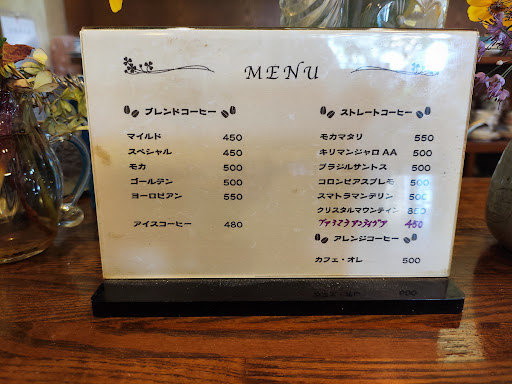 MENU
ブレンドコーヒー
マイルド 450
スペシャル 450
モカ 500
ゴールデン 500
ヨーロピアン 550
アイスコーヒー 480
ストレートコーヒー
モカマタリ 550
キリマンジャロ AA 500
ブラジルサントス 500
コロンビアスプレモ 500
スマトラマンデリン 500
クリスタルマウンテン
450
アレンジコーヒー
カフェ・オレ 500